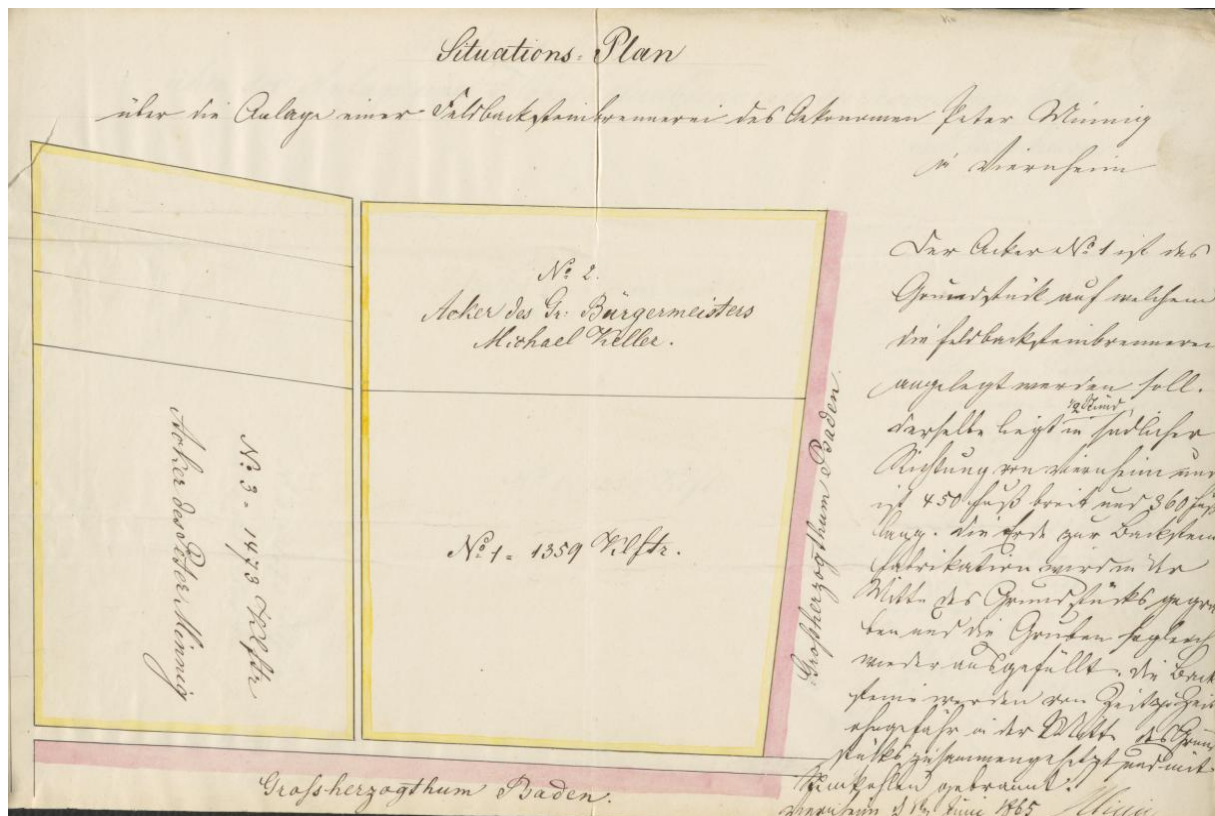 Situations-Plan
über die Anlage einer Feldbacksteinbrennerei des Oekonomen Peter Minnig
in Viernheim
No 2.
Acker des Gr. Bürgermeisters
Michael Keller.
No 1 = 1359 Klftr.
No 3 = 1473 Klftr
Acker des Peter Minnig
Großherzogthum Baden.
Grossherzogthum Baden.
Der Acker No 1 ist das
Grundstück auf welchem
die Feldbacksteinbrennerei
angelegt werden soll.
derselbe liegt in südlicher
Richtung von Viernheim und
ist 450 Fuß breit und 360 Fuß
lang. die Erde zur Backstein
fabrikation wird in der
Mitte des Grundstücks gegra
ben und die Gruben sogleich
wieder ausgefüllt. die Back
steine werden von Zeit zu Zeit
ohngefähr in der Mitte des Grund
stücks zusammengesetzt und mit
Steinkohlen gebrannt.
Viernheim d Juni 1865